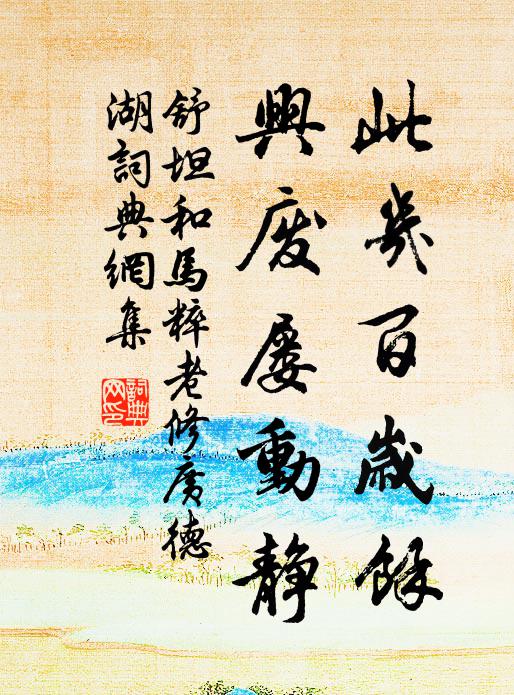 此岁百歲餘
興廢屢動静
舒坦和馬粹老修廣德
湖詞典網集
詞典
网印